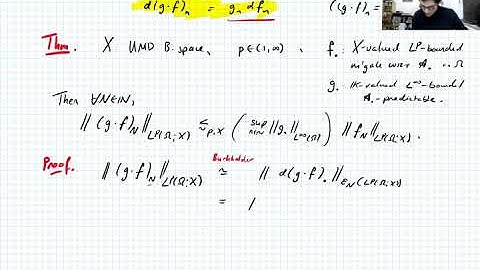 d(g·f)ₙ = gₙ dfₙ (g·f)ₙ =
Thm. X UMD B. space, p∈(1,∞), f. : X-valued Lᵖ-bounded
m'gale w.r.t. 𝒜. in Ω
g. 𝕂-valued L^∞-bounded
𝒜.-predictable.
Then ∀N∈ℕ,
‖ (g·f)_N ‖_{Lᵖ(Ω;X)} ≲_{p,X} ( sup_{n≤N} ‖gₙ‖_{L^∞(Ω)} ) ‖ f_N ‖_{Lᵖ(Ω;X)} .
Proof. ‖ (g·f)_N ‖_{Lᵖ(Ω;X)} ≂ ‖ d(g·f). ‖_{ε_N(Lᵖ(Ω;X))}
Burkholder
= /